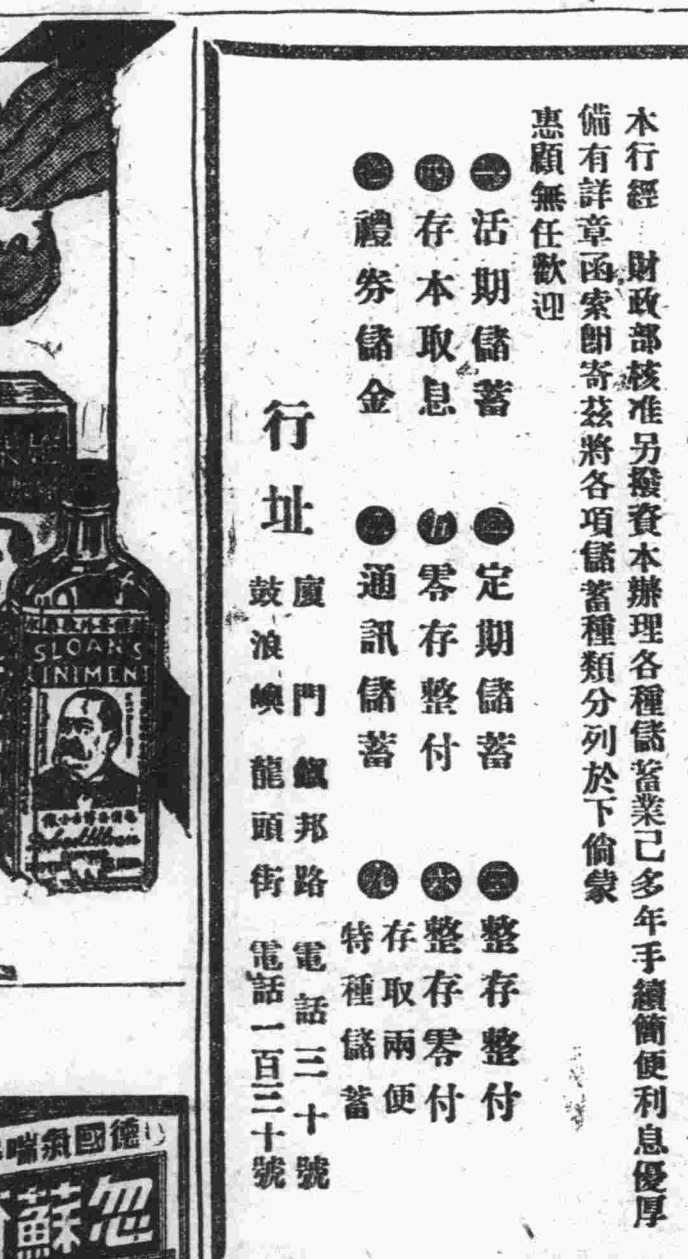 本行經　財政部核准另撥資本辦理各種儲蓄業已多年手續簡便利息優厚
備有詳章函索卽寄茲將各項儲蓄種類分列於下倘蒙
惠顧無任歡迎
一 活期儲蓄
二 定期儲蓄
三 整存整付
四 存本取息
五 零存整付
六 整存零付
七 禮券儲金
八 通訊儲蓄
九 存取兩便
特種儲蓄
行址
廈門 邦路 電話三十號
鼓浪嶼 龍頭街 電話一百三十號
SLOAN'S
LINIMENT
德國氣喘
忽蘇